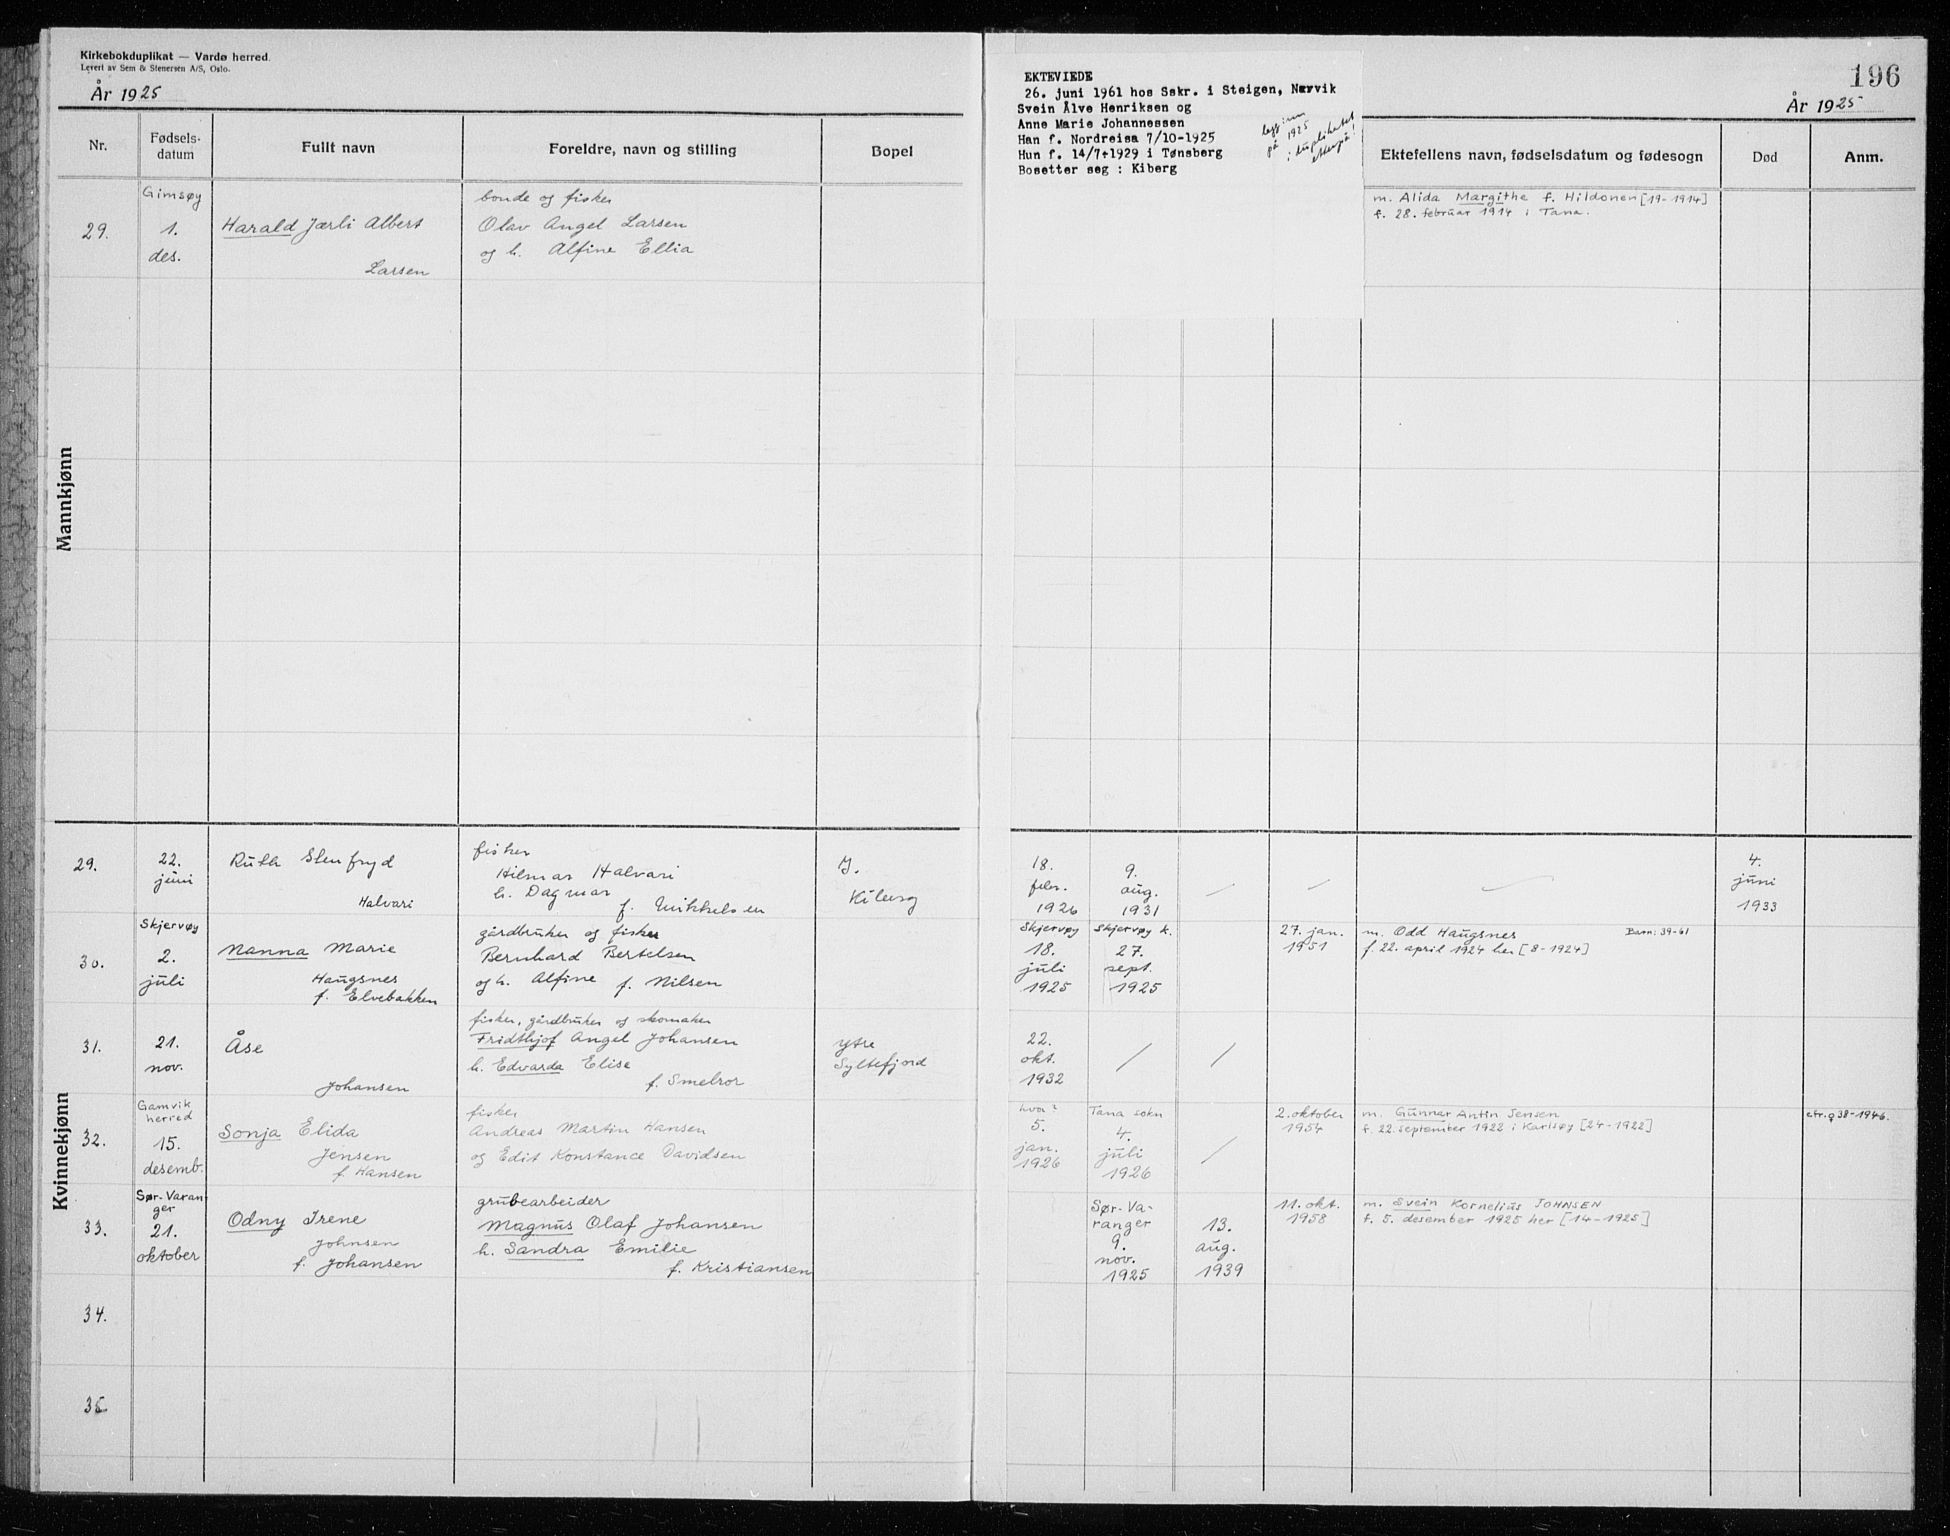 Kirkebokduplikat — Vardø herred.
Levert av Sem & Stenersen A/S, Oslo.
År 1925
Nr.
Fødsels-
datum
Fullt navn
Foreldre, navn og stilling
Bopel
Mannkjønn
29.
Gimsøy
1.
des.
Harald Jærli Albert
Larsen
bonde og fisker
Olav Angel Larsen
og h. Alfine Ellia
Kvinnekjønn
29.
22.
juni
Ruth Stenfryd
Halvari
fisker
Hilmar Halvari
h. Dagmar
f. Mikkelsen
Y.
Kiberg
30.
Skjervøy
2.
juli
Nanna Marie
Haugsnes
f. Elvebakken
gårdbruker og fisker
Bernhard Bertelsen
og h. Alfine f. Nilsen
31.
21.
nov.
Åse
Johansen
fisker, gårdbruker og skomaker
Fridthjof Angel Johansen
h. Edvarda Elise
f. Smelror
ytre
Syltefjord
32.
Gamvik
herred
15.
desemb.
Sonja Elida
Jensen
f. Hansen
fisker
Andreas Martin Hansen
og Edit Konstance Davidsen
33.
Sør-Varan
ger
21.
oktober
Odny Irene
Johnsen
f. Johansen
grubearbeider
Magnus Olaf Johansen
h. Sandra Emilie
f. Kristiansen
34.
35.
EKTEVIEDE
26. juni 1961 hos Sskr. i Steigen, Narvik
Svein Ålve Henriksen og
Anne Marie Johannessen
Han f. Nordreisa 7/10-1925
Hun f. 14/7-1929 i Tønsberg
Bosetter seg : Kiberg
legg inn
på 1925
i duplikatet
196
År 1925
Ektefellens navn, fødselsdatum og fødesogn
Død
Anm.
m. Alida Margithe f. Hildonen [19-1914]
f. 28. februar 1914 i Tana.
18.
febr.
1926
9.
aug.
1931
4.
juni
1933
Skjervøy
18.
juli
1925
Skjervøy k.
27.
sept.
1925
27. jan.
1951
m. Odd Haugsnes Barn: 39-61
f. 22. april 1924 her [8-1924]
22.
okt.
1932
hvor?
5.
jan.
1926
Tana sokn
4.
juli
1926
2. oktober
1954
m. Gunnar Antin Jensen
f. 22. september 1922 i Karlsøy [24-1922]
cfr. q 38-1946.
Sør-Va-
ranger
9.
nov.
1925
13.
aug.
1939
11. okt.
1958
m. Svein Kornelius JOHNSEN
f. 5. desember 1925 her [14-1925]